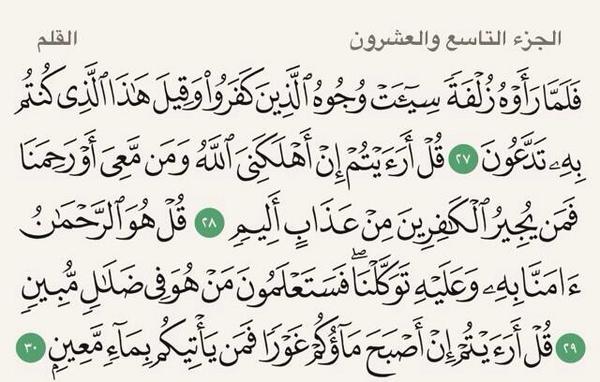 الجزء التاسع والعشرون القلم
فَلَمَّا رَأَوۡهُ زُلۡفَةٗ سِيٓـَٔتۡ وُجُوهُ ٱلَّذِينَ كَفَرُواْ وَقِيلَ هَٰذَا ٱلَّذِي كُنتُم
بِهِۦ تَدَّعُونَ ٢٧ قُلۡ أَرَءَيۡتُمۡ إِنۡ أَهۡلَكَنِيَ ٱللَّهُ وَمَن مَّعِيَ أَوۡ رَحِمَنَا
فَمَن يُجِيرُ ٱلۡكَٰفِرِينَ مِنۡ عَذَابٍ أَلِيمٖ ٢٨ قُلۡ هُوَ ٱلرَّحۡمَٰنُ
ءَامَنَّا بِهِۦ وَعَلَيۡهِ تَوَكَّلۡنَاۖ فَسَتَعۡلَمُونَ مَنۡ هُوَ فِي ضَلَٰلٖ مُّبِينٖ
٢٩ قُلۡ أَرَءَيۡتُمۡ إِنۡ أَصۡبَحَ مَآؤُكُمۡ غَوۡرٗا فَمَن يَأۡتِيكُم بِمَآءٖ مَّعِينِۭ ٣٠